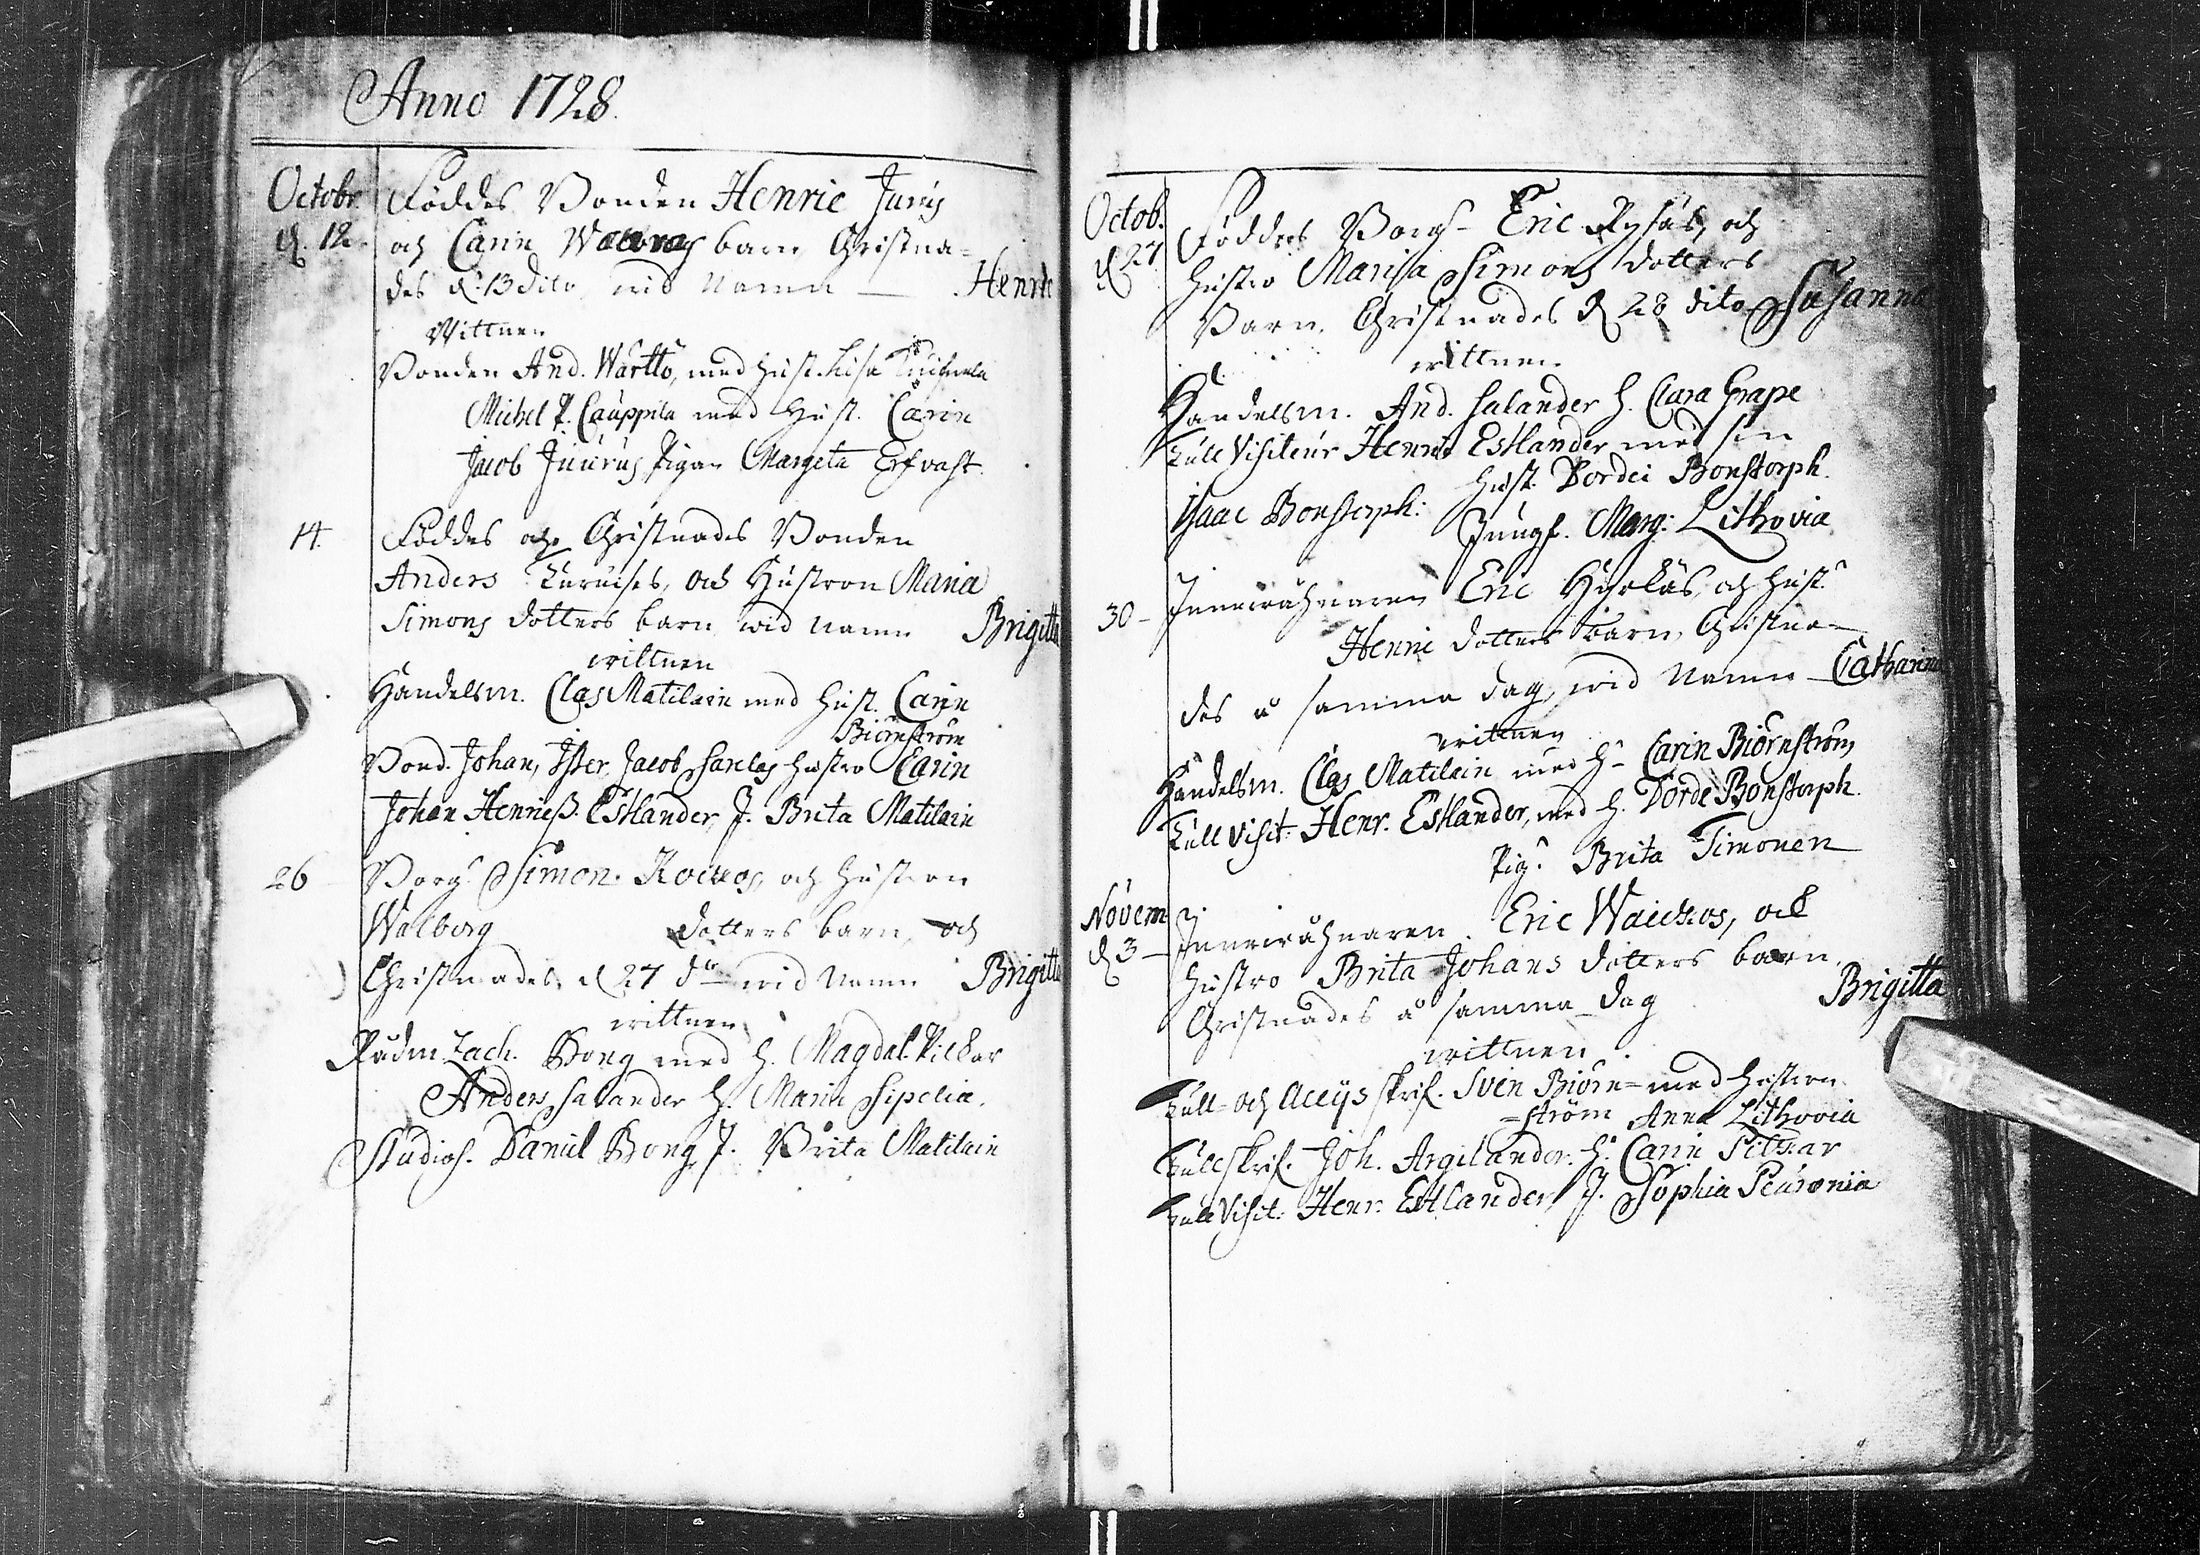 Anno 1728.
Octobr. Föddes Bonden Henric Jurus
d. 12. och Carin barn Christna=
des d. 13 dito wid Namn — Henric
Wittnen
Bonden And. Wartto, med Hust. Lisa
Michel P. Cauppila med Hust. Carin
Jacob Juurus, Pigan Margeta Erfvast
14. Föddes och Christnades Bonden
Anders och Hustron Maria
Simons dotters barn wid namn Brigitta
wittnen
Handelsm. Clas Matilain med Hust. Carin
Biörnström
Bond. Johan, Jacob hustro Carin
Johan Henricß. Estlander, J. Brita Matilain
26 Borg. Simon och Hustron
Walborg dotters barn, och
Christnades d 27 dto wid Namn Brigitta
wittnen
Rådm. Zach. Bong med H. Magdal. Pilkar
Anders Salander H. Maria Sipelia.
Studios. Daniel Bong, J. Brita Matilain
Octob. Föddes Borg. Eric och
d 27. hustro Marisa Simons dotters
Barn. Christnades d 28 dito Susanna
wittnen.
Handelsm. And. Salander H. Clara Grape
Tull Visiteur Henric Estlander med sin
Hust. Dordei Bonstorph.
Isaac Bonstorph: Jungf. Marg: Lithovia
30 – Innerwåhnaren Eric och Hust.
Henric dotters barn, Christna-
des å samma dag, wid Namn – Catharina
wittnen
Handelsm. Clas Matilain med H. Carin Biörnström
Tull visit: Henr. Estlander, med H. Dorde Bonstorph.
Pig. Brita Timonen
Novem Innerwåhnaren Eric Waickos, och
d 3 – hustro Brita Johans dotters barn,
Christnades å samma dag Brigitta
wittnen.
Tull- och Accijs skrif. Sven Biörn= med hustron
=ström Anna Lithovia
Tullskrif. Joh. Argilander. H. Carin Pilkar
Tull Visit: Henr. Estlander J. Sophia Peuronia